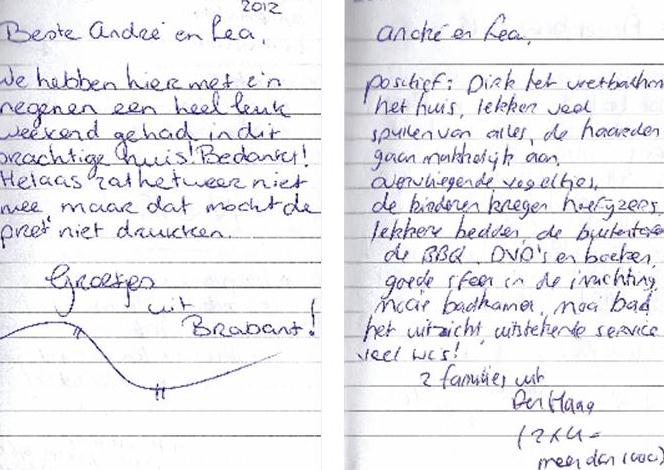 2012
Beste André en Lea,
We hebben hier met z'n
negenen een heel leuk
weekend gehad in dit
prachtige huis! Bedankt!
Helaas zat het weer niet
mee maar dat mocht de
pret niet drukken.
Groetjes
uit
Brabant!
André en Lea,
positief: Dirk het
het huis, lekker veel
spullen van alles, de haarden
gaan makkelijk aan,
overvliegende vogeltjes,
de kinderen kregen hoefijzers,
lekkere bedden, de
de BBQ, DVD's en boeken,
goede sfeer in de inrichting
mooie badkamer, mooi bad,
het uitzicht, uitstekende service
veel wc's!
2 families uit
Den Haag
(2x4=
meer dan